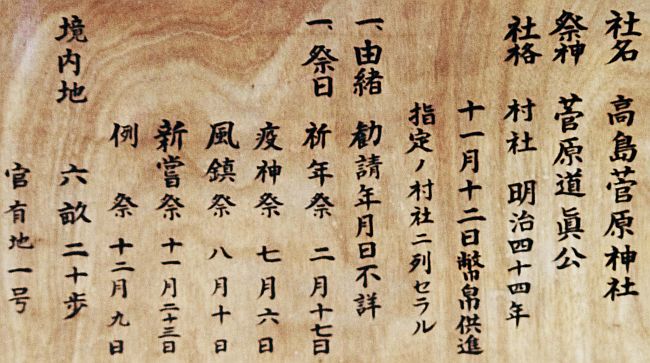 社名 高島菅原神社
祭神 菅原道眞公
社格 村社 明治四十四年
十一月十二日幣帛供進
指定ノ村社ニ列セラル
一、由緒 勧請年月日不詳
一、祭日 祈年祭 二月十七日
疫神祭 七月六日
風鎮祭 八月十日
新嘗祭 十一月二十三日
例祭 十二月九日
境内地 六畝二十歩
官有地一号